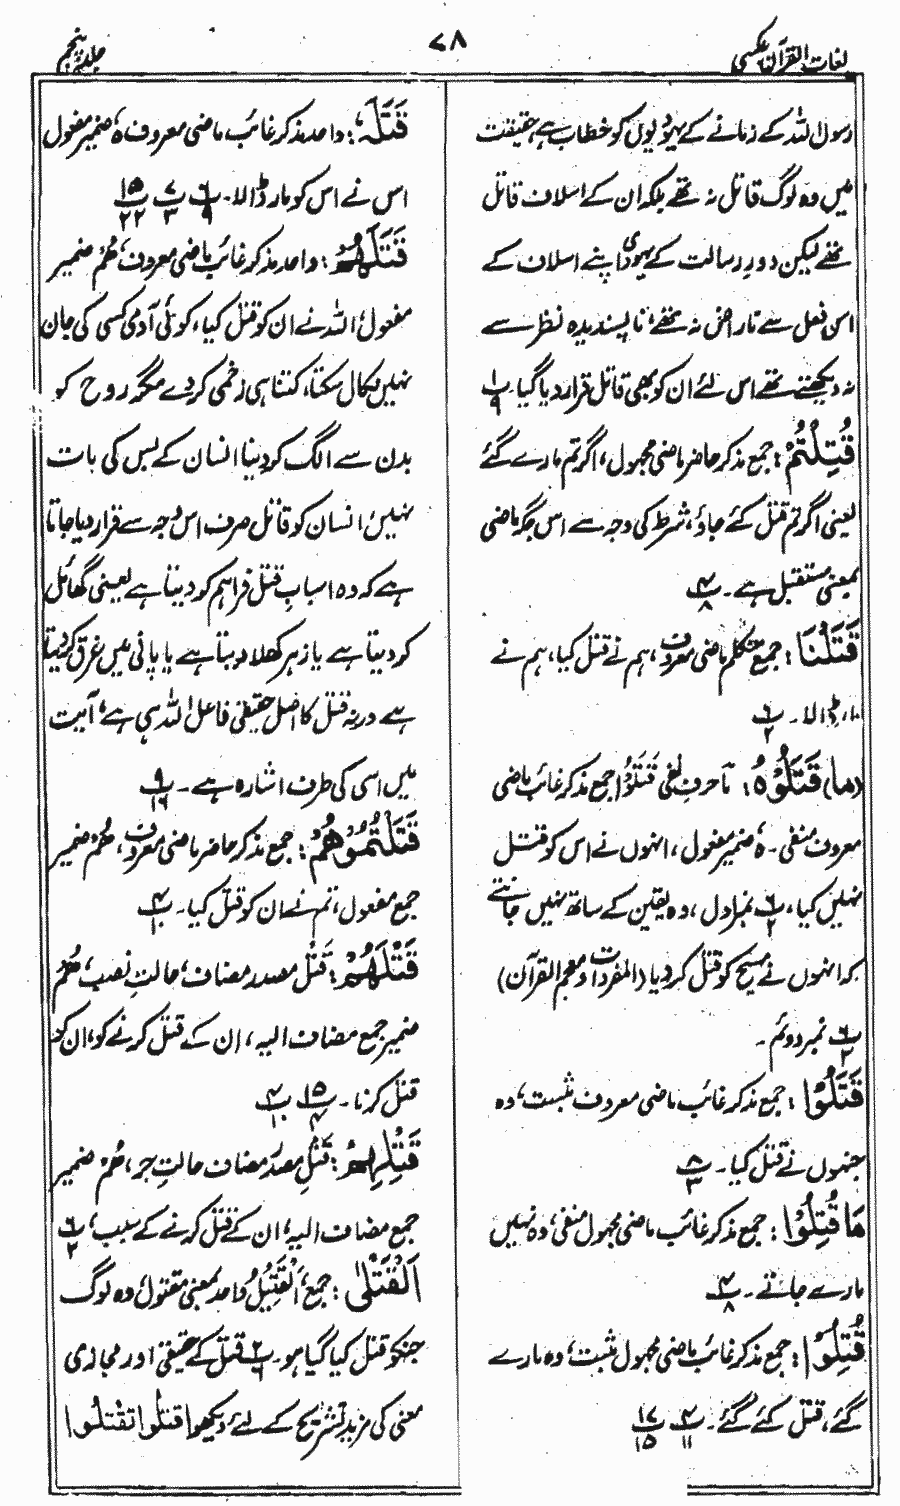 لغات القرآن عکسی
۷۸
جلد پنجم
رسول اللہ کے زمانے کے یہودیوں کو خطاب ہے، حقیقت
میں وہ لوگ قاتل نہ تھے بلکہ ان کے اسلاف قاتل
تھے لیکن دور رسالت کے یہودی اپنے اسلاف کے
اس فعل سے ناراض نہ تھے، ناپسندیدہ نظر سے
نہ دیکھتے تھے اس لئے ان کو بھی قاتل قرار دیا گیا پ۱/۹
قُتِلْتُمْ: جمع مذکر حاضر ماضی مجہول، اگر تم مارے گئے
یعنی اگر تم قتل کئے جاؤ، شرط کی وجہ سے اس جگہ ماضی
بمعنی مستقبل ہے۔ پ۴/۸
قَتَلْنَا: جمع متکلم ماضی معروف، ہم نے قتل کیا، ہم نے
مار ڈالا۔ پ۶/۲
(ما) قَتَلُوْهُ: مَا حرف نفی قَتَلُوْا جمع مذکر غائب ماضی
معروف منفی۔ هُ ضمیر مفعول، انہوں نے اس کو قتل
نہیں کیا، پ۶/۲ نمبر اول، وہ یقین کے ساتھ نہیں جانتے
کہ انہوں نے مسیح کو قتل کر دیا (المفردات و معجم القرآن)
پ۶/۲ نمبر دوئم۔
قَتَلُوْا: جمع مذکر غائب ماضی معروف مثبت، وہ
جنہوں نے قتل کیا۔ پ۸/۳
مَا قُتِلُوْا: جمع مذکر غائب ماضی مجہول منفی، وہ نہیں
مارے جاتے۔ پ۴/۸
قُتِلُوْا: جمع مذکر غائب ماضی مجہول مثبت، وہ مارے
گئے، قتل کئے گئے۔ پ۴/۱۱ پ۱۷/۱۵
قَتَلَہٗ: واحد مذکر غائب ماضی معروف ہٗ ضمیر مفعول
اس نے اس کو مار ڈالا۔ پ۶/۹ پ۷/۳ پ۱۵/۲۲
قَتَلَهُمْ: واحد مذکر غائب ماضی معروف، هُمْ ضمیر
مفعول، اللہ نے ان کو قتل کیا، کوئی آدمی کسی کی جان
نہیں نکال سکتا، کتنا ہی زخمی کر دے مگر روح کو
بدن سے الگ کر دینا انسان کے بس کی بات
نہیں، انسان کو قاتل صرف اس وجہ سے قرار دیا جاتا
ہے کہ وہ اسبابِ قتل فراہم کر دیتا ہے یعنی گھائل
کر دیتا ہے یا زہر کھلا دیتا ہے یا پانی میں غرق کر دیتا
ہے ورنہ قتل کا اصل حقیقی فاعل اللہ ہی ہے، آیت
میں اسی کی طرف اشارہ ہے۔ پ۹/۱۶
قَتَلْتُمُوْهُمْ: جمع مذکر حاضر ماضی معروف، هُمْ ضمیر
جمع مفعول، تم نے ان کو قتل کیا۔ پ۴/۱۰
قَتْلَهُمْ: قَتْل مصدر مضاف، حالتِ نصب، هُمْ
ضمیر جمع مضاف الیہ، ان کے قتل کرنے کو، ان کو
قتل کرنا۔ پ۱۵/۴ پ۴/۱۰
قَتْلِهِمْ: قَتْلِ مصدر مضاف حالتِ جر، هُمْ ضمیر
جمع مضاف الیہ، ان کے قتل کرنے کے سبب، پ۶/۲
اَلْقَتْلٰی: جمع، اَلْقَتِیْلُ واحد بمعنی مقتول، وہ لوگ
جنکو قتل کیا گیا ہو۔ پ۲/۶ قتل کے حقیقی اور مجازی
معنی کی مزید تشریح کے لئے دیکھو اقتلوا تقتلوا